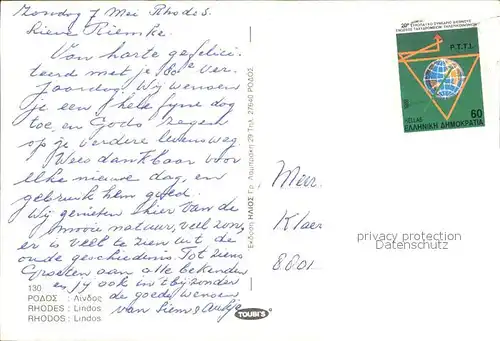 Zondag 7 Mei Rhodes.
Lieve Riemke.
Van harte gefelici
teerd met je 80e ver-
jaardag. Wij wensen
je een heel fijne dag
toe, en Gods zegen
op je verdere levensweg.
Wees dankbaar voor
elke nieuwe dag, en
gebruik hem goed.
Wij genieten hier van de
mooie natuur, veel zon,
er is veel te zien uit de
oude geschiedenis. Tot ziens
Groeten aan alle bekenden
en jij ook in 't bijzonder
de goede wensen
van Siem &
130
ΡΟΔΟΣ : Λίνδος
RHODES : Lindos
RHODOS : Lindos
Έκδοση ΗΛΙΟΣ Γρ. Λαμπράκη 29 Τηλ. 27640 ΡΟΔΟΣ
TOUBI'S
P.T.T.I.
HELLAS 60
ΕΛΛΗΝΙΚΗ ΔΗΜΟΚΡΑΤΙΑ
Mevr.
Klaer
8801
privacy protection
Datenschutz